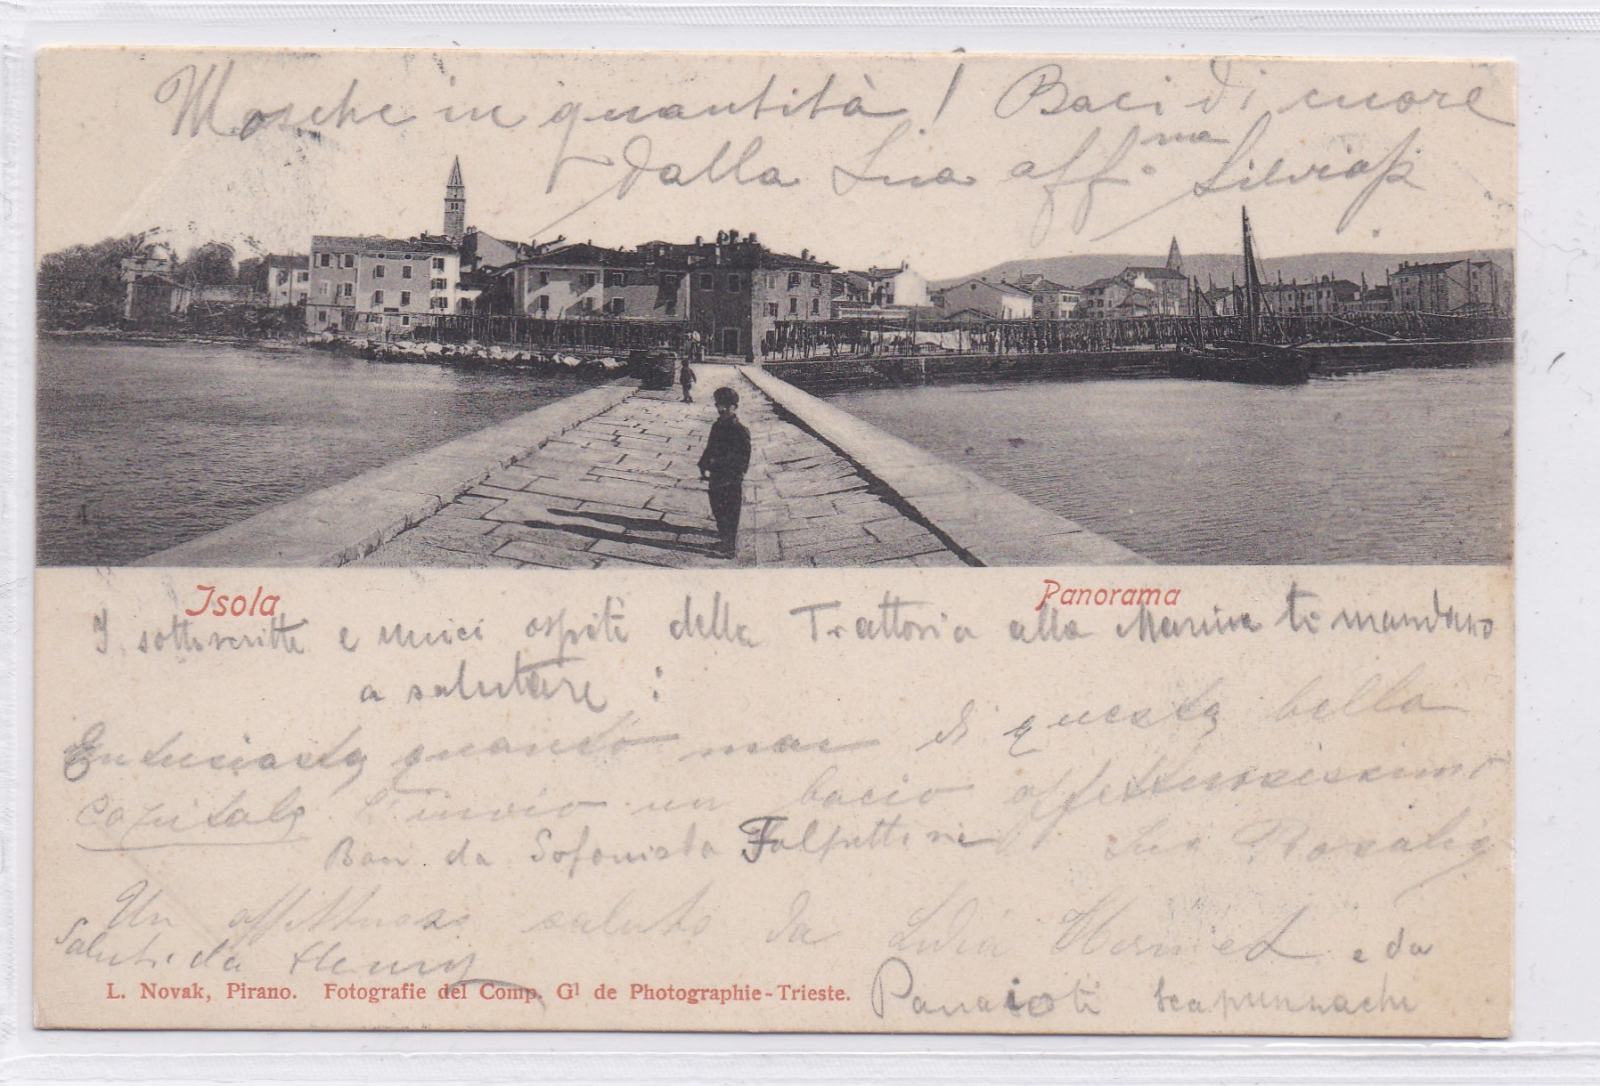 Mosche in quantità! Baci di cuore
dalla Sua aff.ma Silvia
Isola
Panorama
I sottoscritti e unici ospiti della Trattoria alla Marina ti mandano
a salutare :
Entusiasta quanto mai di questa bella
capitale t'invio un bacio affettuosissimo
tua Rosalia
Baci da Sofonisba
Un affettuoso saluto da Lidia e da
Saluti da Henry
Panaioti
L. Novak, Pirano. Fotografie del Comp. Gl de Photographie-Trieste.